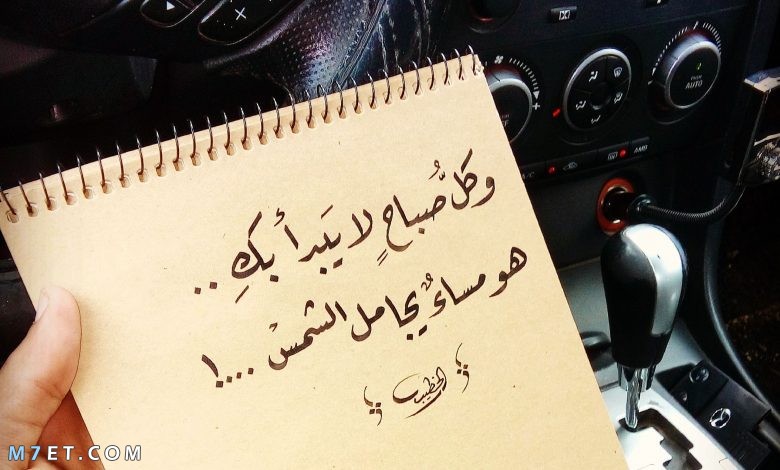 وكلُّ صُباحٍ لا يَبدأ بكِ ..
هو مساءٌ يجامل الشمسْ ....!
الخطيب
M7ET.COM
AUTO